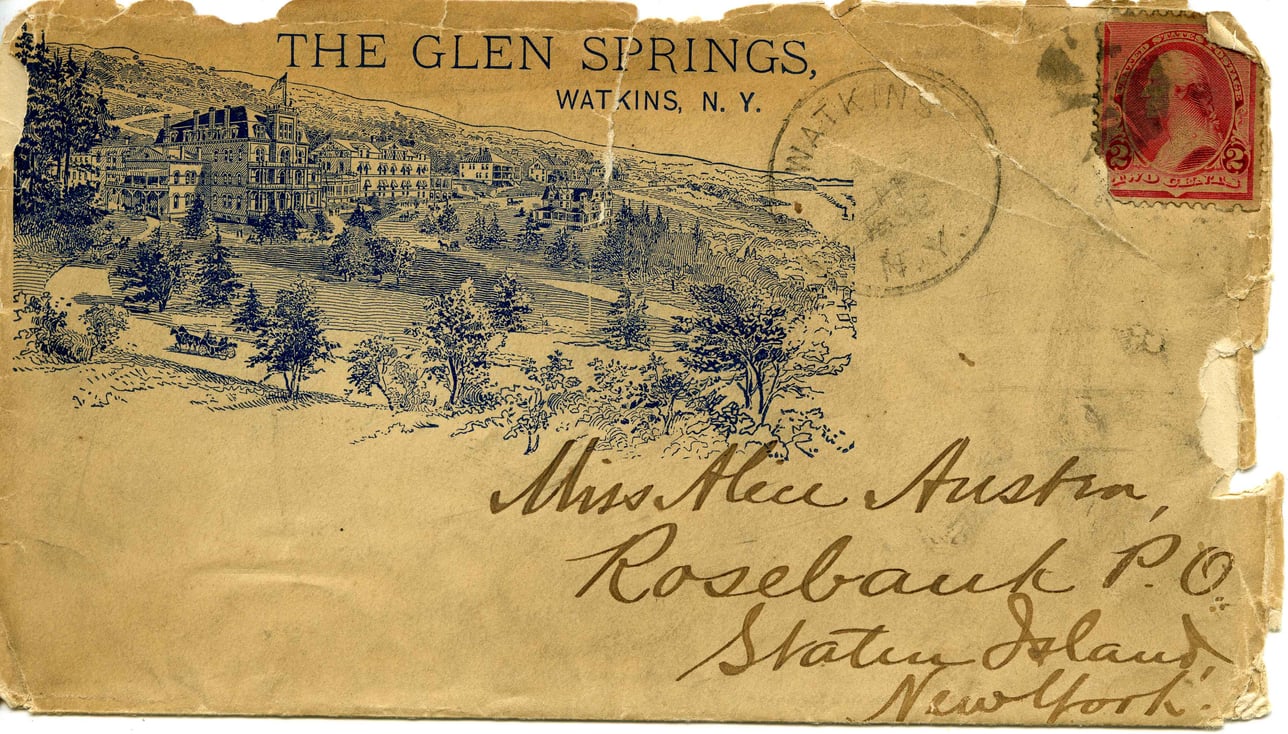 THE GLEN SPRINGS,
WATKINS, N. Y.
WATKINS
N.Y.
UNITED STATES POSTAGE
2 2
TWO CENTS
Miss Alice Austen,
Rosebank P.O.
Staten Island,
New York.